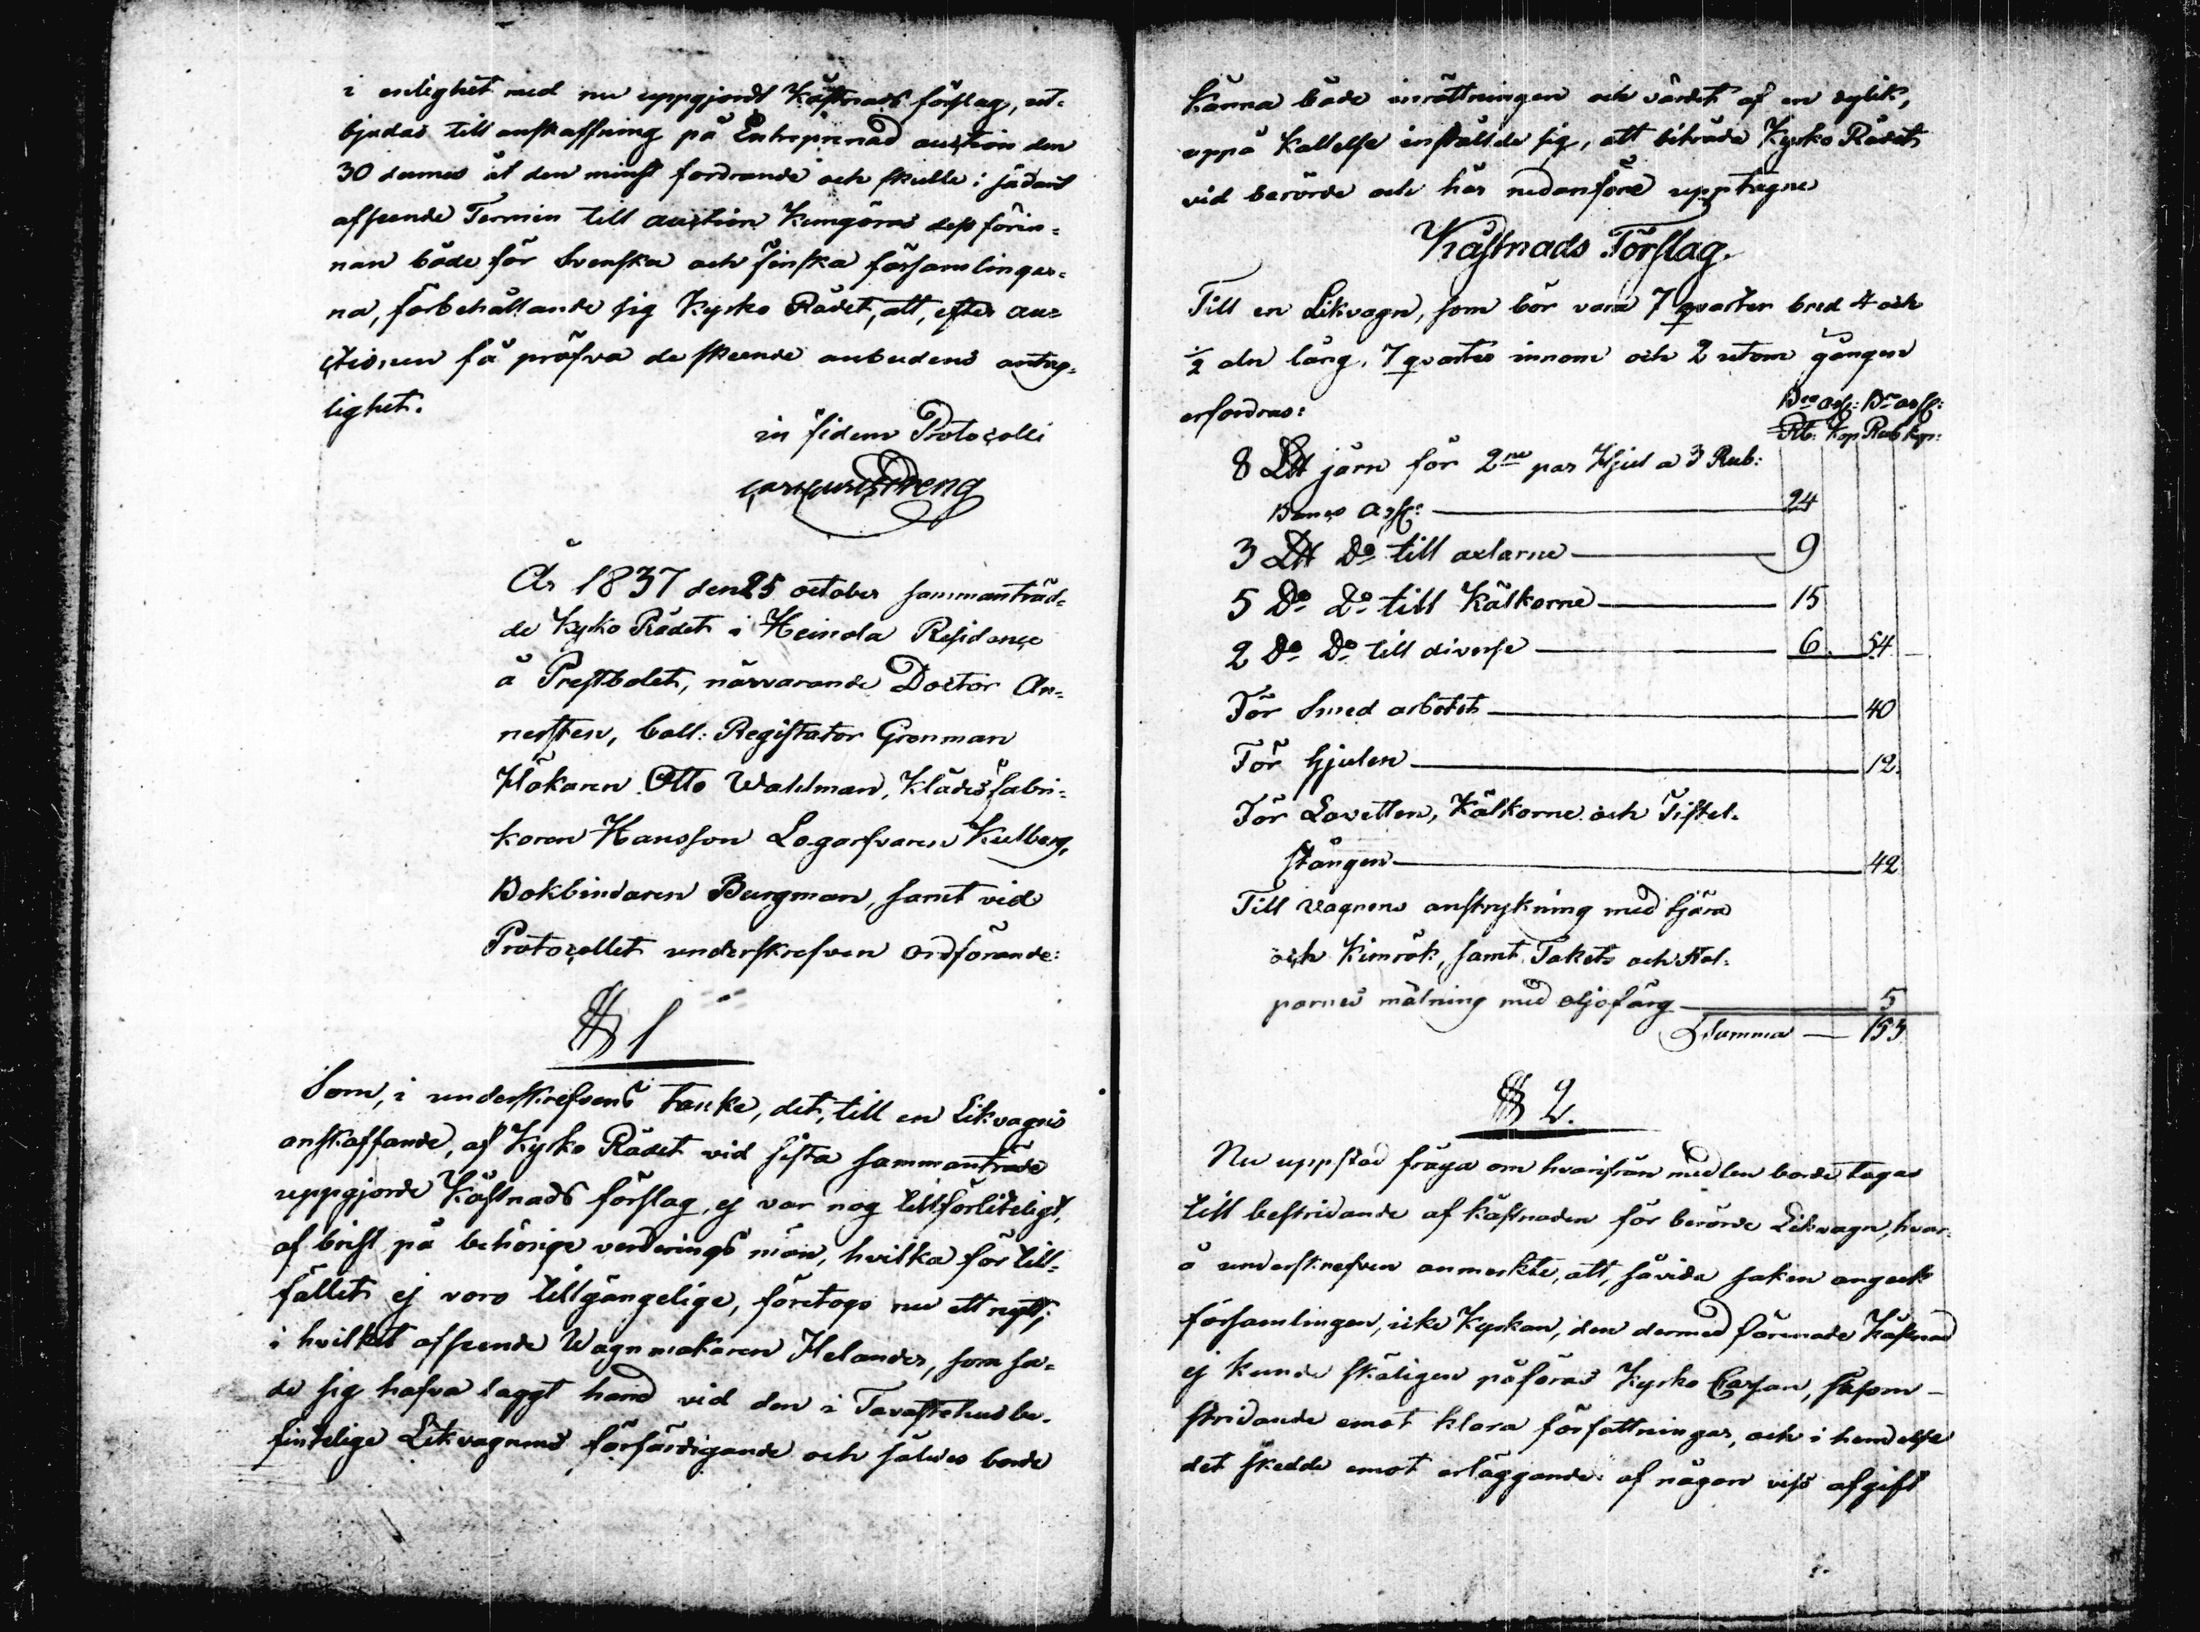 i enlighet med nu uppgjordt Kåstnads förslag, ut-
bjudas till anskaffning på Entreprenad auction den
30 dennes åt den minst fordrande och skulle i sådant
afseende Termin till auction Kungöras dess förin-
nan både för Svenska och finska församlingar-
na, förbehållande sig Kyrko Rådet, att, efter au-
ctionen få pröfva de skeende anbudens antag-
lighet.
in fidem Protocolli
År 1837 den 25 october sammanträd-
de Kyrko Rådet i Heinola Residence
å Prestbolet, närvarande Doctor
Coll: Registrator Grönman
Hökaren Otto Wahlman, Klädesfabri-
koren Hansson Logarfvaren Kulberg,
Bokbindaren Bergman, samt vid
Protocollet underskrefven ordförande:
§ 1
Som, i underskrefvens tanke, det, till en Likvagns
anskaffande, af Kyrko Rådet vid sista sammanträde
uppgjorde Kåstnads förslag, ej var nog tillförliteligt,
af brist på behörige värderings män, hvilka för till-
fället ej voro tillgängelige, företogs nu ett nytt,
i hvilket afseende Wagnmakaren Helander, som sa-
de sig hafva laggt hand vid den i Tavastehus be-
fintelige Likvagnens förfärdigande och således borde
känna både inrättningen och värdet af en dylik,
uppå Kallelse inställde sig, att biträda Kyrko Rådet
vid berörde och här nedanföre upptagne
Kåstnads Förslag.
Till en Likvagn, som bör vara 7 qvarter bred 4 och
1/2 aln lång, 7 qvarter innom och 2 utom gången
erfordras:
Bco ass: Bco ass:
Rb: Kop Rub Kop:
8 L℔ järn för 2ne par Hjul a 3 Rub:
Banco Ass: 24
3 L℔ Do till axlarne 9
5 Do Do till Kälkorne 15
2 Do Do till diverse 6. 54
För Smed arbetet 40
För hjulen 12.
För Lavetten, Kälkorne och Tistel-
stången 42
Till vagnens anstrykning med tjära
och Kimrök, samt Takets och Stol-
parnes målning med oljofärg 5
Summa 153
§ 2.
Nu uppstod fråga om hvarifrån medlen borde tagas
till bestridande af kåstnaden för berörde Likvagn, hvar-
å underskrefven anmerkte, att, såvida saken angeck
församlingen, icke Kyrkan, den dermed förenade Kåstnad
ej kunde skäligen påföras Kyrko Cassan, såsom
stridande emot klara författningar, och i hendelse
det skedde emot erläggande af någon viss afgift